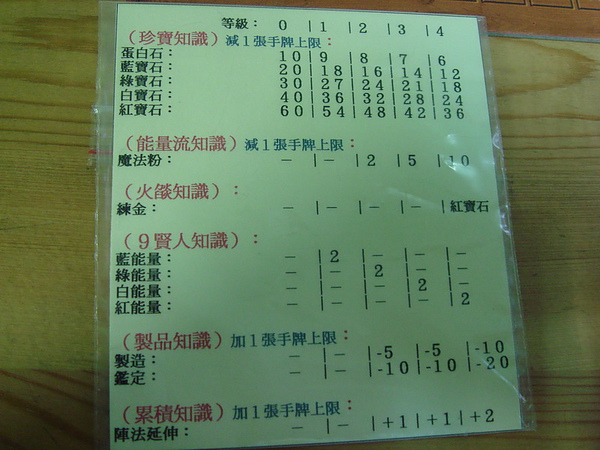 等級： 0 |1 |2 |3 |4
（珍寶知識）減1張手牌上限：
蛋白石： 10|9 |8 |7 |6
藍寶石： 20|18|16|14|12
綠寶石： 30|27|24|21|18
白寶石： 40|36|32|28|24
紅寶石： 60|54|48|42|36
（能量流知識）減1張手牌上限：
魔法粉： － |－ |2 |5 |10
（火燄知識）：
練金： － |－ |－ |－ |紅寶石
（9賢人知識）：
藍能量： － |2 |－ |－ |－
綠能量： － |－ |2 |－ |－
白能量： － |－ |－ |2 |－
紅能量： － |－ |－ |－ |2
（製品知識）加1張手牌上限：
製造： － |－ |-5 |-5 |-10
鑑定： － |－ |-10|-10|-20
（累積知識）加1張手牌上限：
陣法延伸： － |－ |+1 |+1 |+2